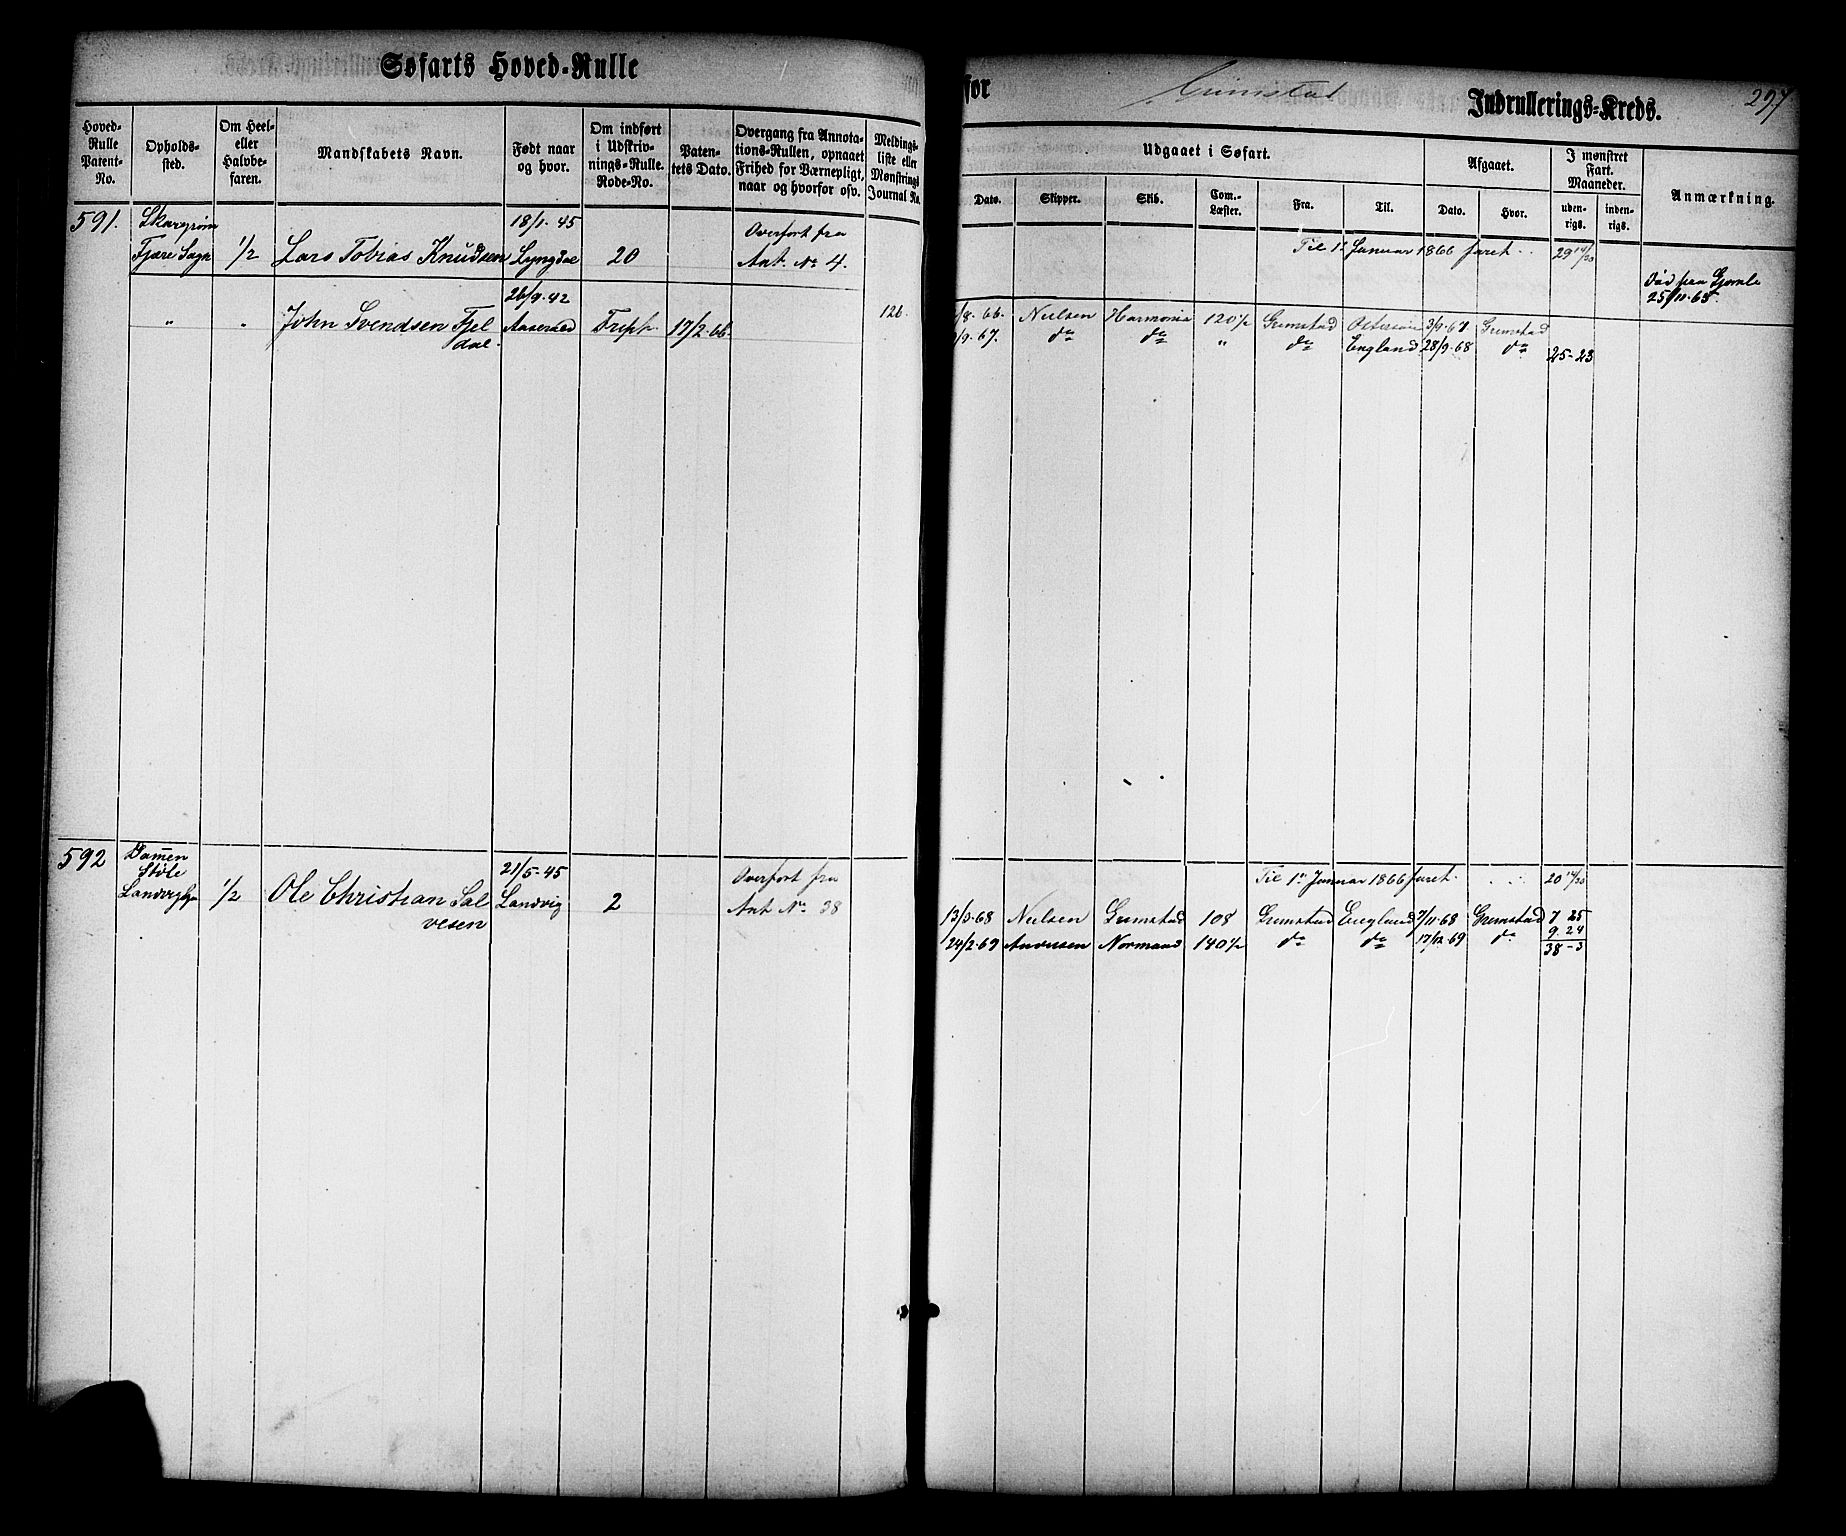 Søfarts Hoved-Rulle
for Grimstad Indrullerings-Kreds.
297
Hoved-Rulle Patent-No.
Opholds-sted.
Om Heel- eller Halvbe-faren.
Mandskabets Navn.
Født naar og hvor.
Om indført i Udskriv-nings-Rulle. Rode-No.
Paten-tets Dato.
Overgang fra Annota-tions-Rullen, opnaaet Frihed for Værnepligt, naar og hvorfor osv.
Meldings-liste eller Mønstrings Journal No.
Udgaaet i Søfart.
Afgaaet.
I mønstret Fart. Maaneder.
Anmærkning.
Dato.
Skipper.
Skib.
Com.-Læster.
Fra.
Til.
Dato.
Hvor.
uden-rigs.
inden-rigs.
591.
Fjære Sogn
1/2
Lars Tobias Knudsen
18/1. 45
Lyngdal
20
Overført fra
Ant. No 4.
Til 1te Januar 1866 faret
29 14/30
Død paa
25/11.65.
"
"
John Svendsen Fjel
dal.
26/9.42
Aaserald
Fripp.
17/2.66.
126.
/8.66. Nielsen Harmonia 120 1/2 Grimstad 3/9.67 Grimstad
/9.67. do do " do England 28/9.68 do 25-23
592
Støle
Landvig
1/2
Ole Christian Sal
vesen
21/5-45
Landvig
2
Overført fra
Ant No 38
Til 1te Januar 1866 faret
20 14/30
13/3.68 Nielsen Grimstad 108 Grimstad England 7/11.68 Grimstad 7 25
24/2.69 Andersen Normand 140 1/2 do do 17/12.69 do 9.24
38-3